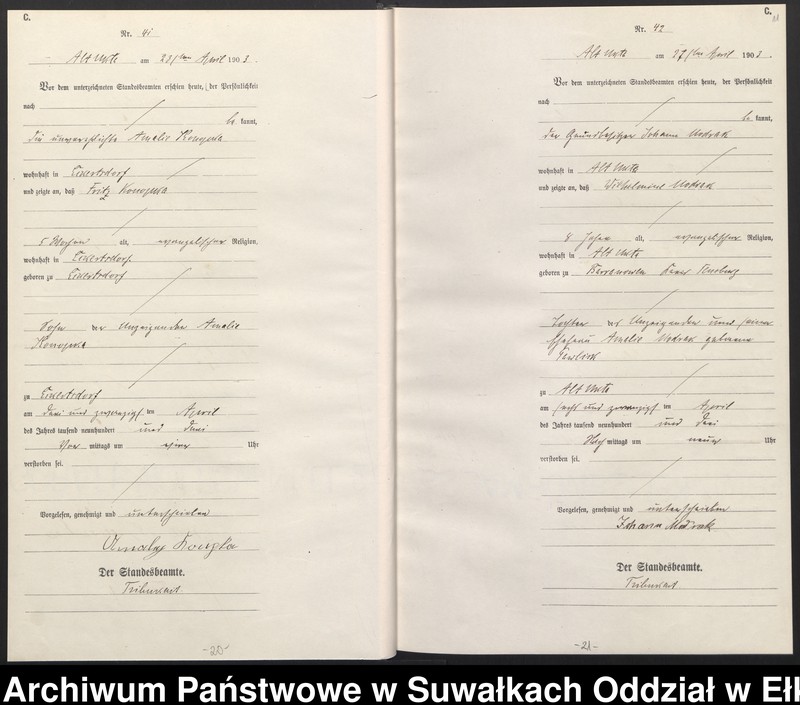 C.
Nr. 41
Alt Ukta am 23ten April 1903.
Vor dem unterzeichneten Standesbeamten erschien heute, der Persönlichkeit
nach
be kannt,
die unverehelichte Amalie Konopka
wohnhaft in Eckertsdorf
und zeigte an, daß Fritz Konopka
5 Wochen alt, evangelischer Religion,
wohnhaft in Eckertsdorf
geboren zu Eckertsdorf
Sohn der Anzeigenden Amalie
Konopka
zu Eckertsdorf
am drei und zwanzigsten April
des Jahres tausend neunhundert und drei
Vor mittags um ein Uhr
verstorben sei.
Vorgelesen, genehmigt und unterschrieben
Amalie
Der Standesbeamte.
-20-
C.
21
Nr. 42
Alt Ukta am 27ten April 1903.
Vor dem unterzeichneten Standesbeamten erschien heute, der Persönlichkeit
nach
be kannt,
der Grundbesitzer Johann Modrak
wohnhaft in Alt Ukta
und zeigte an, daß Wilhelmine Modrak
8 Jahre alt, evangelischer Religion,
wohnhaft in Alt Ukta
geboren zu Kreis Sensburg
Tochter des Anzeigenden und seiner
Ehefrau Amalie Modrak geborene
zu Alt Ukta
am sechs und zwanzigsten April
des Jahres tausend neunhundert und drei
Nach mittags um neun Uhr
verstorben sei.
Vorgelesen, genehmigt und unterschrieben
Johann Modrak
Der Standesbeamte.
-21-
Archiwum Państwowe w Suwałkach Oddział w Ełk